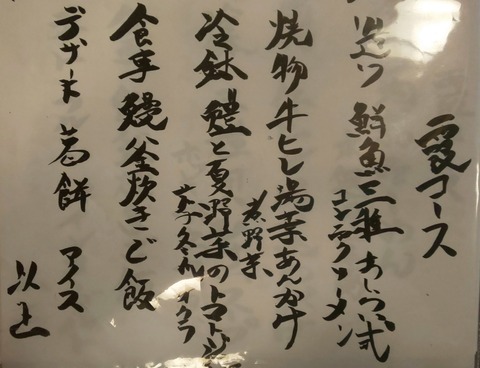 コース
造り 鮮魚三種 あしらい一式
コンニャクソーメン
焼物 牛ヒレ湯葉あんかけ
野菜
冷鉢 鱧と夏野菜のトマト
冬瓜 オクラ
食事 鰻釜炊きご飯
デザート 葛餅 アイス
以上